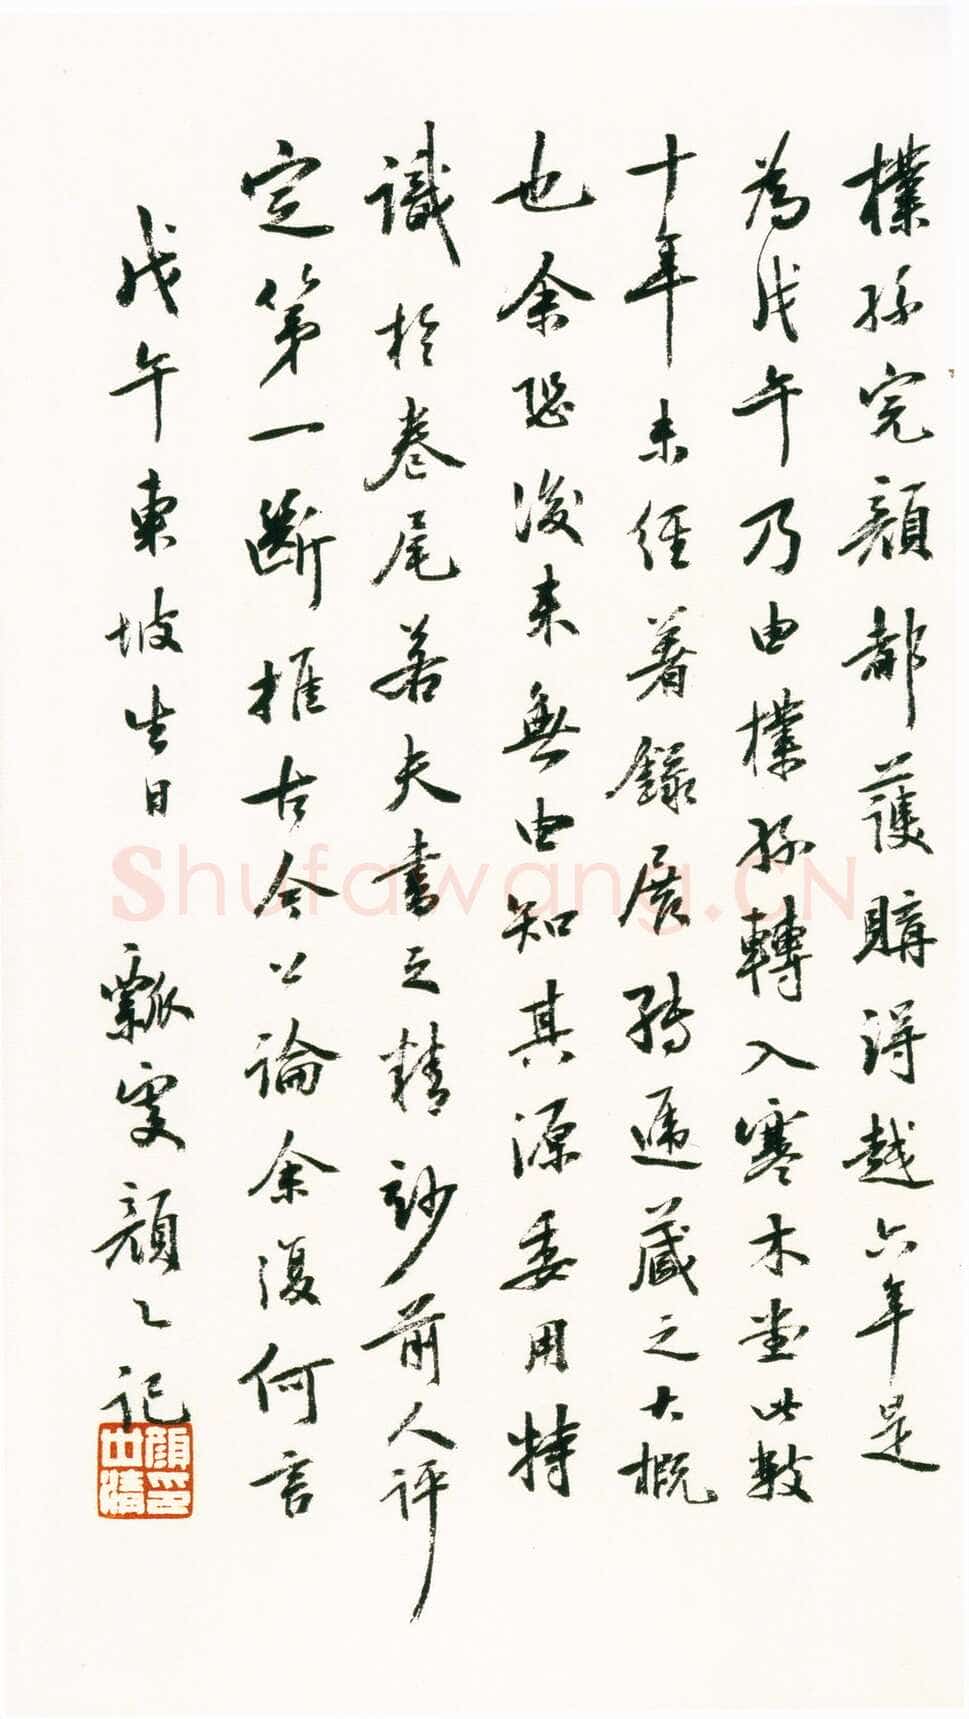 樸孫完顏都護購得越六年是
為戊午乃由樸孫轉入寒木堂此數
十年未經著錄展轉遞藏之大概
也余恐後來無由知其源委用特
識於卷尾若夫書之精妙前人評
定第一斷推古今公論余復何言
戊午東坡生日 瓢叟顏乙記
顏世清印
Shufawang.CN